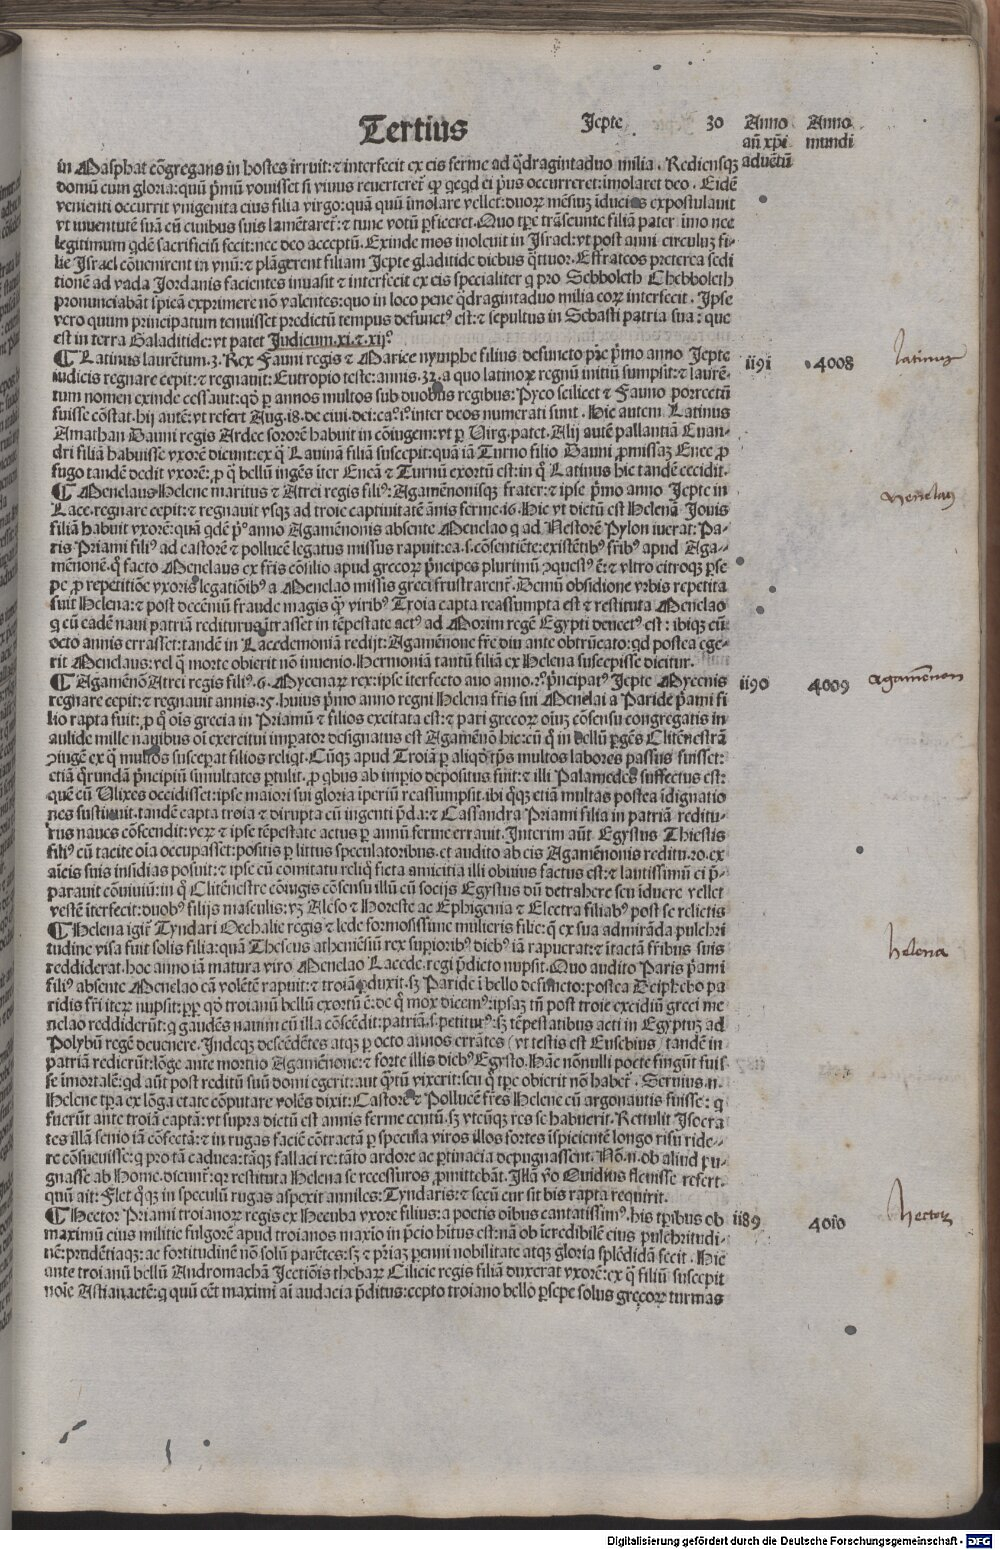 Tertius Jepte 30 Anno Anno
añ xp̄i mundi
aduētū
in Masphat cōgregans in hostes irruit: ⁊ interfecit ex eis ferme ad q̄dragintaduo milia. Rediensqꝫ
domū cum gloria: quū pͥmū vouisset si viuus reuerteret̉ ꝙ qcqd ei pͥus occurreret: īmolaret deo. Eidē
venienti occurrit vnigenita eius filia virgo: quā quū īmolare vellet: duoꝝ mēsiuꝫ īducias expostulauit
vt iuuentutē suā cū ciuibus suis lamētaret̉: ⁊ tunc votū ꝑficeret. Quo tꝑe trāseunte filiā pater īmo nec
legitimum qdē sacrificiū fecit: nec deo acceptū. Exinde mos inoleuit in Israel: vt post anni circuluꝫ fi-
lie Israel cōuenirent in vnū: ⁊ plāgerent filiam Jepte gladitide diebus q̄ttuor. Effrateos preterea sedi
tionē ad vada Jordanis facientes inuasit ⁊ interfecit ex eis specialiter q pro Sebboleth Chebboleth
pronunciabāt spicā exprimere nō valentes: quo in loco pene q̄dragintaduo milia eoꝝ interfecit. Ipse
vero quum principatum tenuisset predictū tempus defunctꝰ est: ⁊ sepultus in Sebasti patria sua: que
est in terra Galaditide: vt patet Judicum. xi. ⁊. xijͦ.
¶ Latinus laurētum. 3. Rex Fauni regis ⁊ Marice nymphe filius defuncto pr̄e pͥmo anno Jepte 1191 4008 latinus
iudicis regnare cepit: ⁊ regnauit: Eutropio teste: annis. 32. a quo latinoꝝ regnū initiū sumpsit: ⁊ laurē-
tum nomen exinde cessauit: qd̄ ꝑ annos multos sub duobus regibus: Pyco scilicet ⁊ Fauno porrectū
fuisse cōstat. hij autē: vt refert Aug. 18. de ciui. dei: ca. iͦ. inter deos numerati sunt. Hic autem Latinus
Amathan Dauni regis Ardee sororē habuit in cōiugem: vt ꝑ Virg. patet. Alij autē pallantiā Euan-
dri filiā habuisse vxorē dicunt: ex q̄ Lauinā filiā suscepit: quā iā Turno filio Dauni ꝓmissaꝫ Enee ꝓ
fugo tandē dedit vxorē: ꝓ q̄ bellū ingēs īter Eneā ⁊ Turnū exortū est: in q̄ Latinus hic tandē cecidit.
¶ Menelaus Helene maritus ⁊ Atrei regis filiꝰ: Agamēnonisqꝫ frater: ⁊ ipse pͥmo anno Jepte in menelaus
Lace. regnare cepit: ⁊ regnauit vsqꝫ ad troie captiuitatē ānis ferme. 16. Hic vt dictū est Helenā Jouis
filiā habuit vxorē: quā qdē pͥͦ anno Agamēnonis absente Menelao q ad Nestorē Pylon iuerat: Pa-
ris Priami filiꝰ ad castorē ⁊ pollucē legatus missus rapuit: ea. s. cōsentiēte: existētibꝰ fr̄ibꝰ apud Aga-
mēnonē. q̄ facto Menelaus ex fr̄is cōsilio apud grecoꝝ pͥncipes plurimū ꝯquestꝰ ē: ⁊ vltro citroqꝫ ꝑse
pe ꝓ repetitiōe vxoris legatiōibꝰ a Menelao missis greci frustrarent̉. Demū obsidione vrbis repetita
fuit Helena: ⁊ post decēniū fraude magis qͣꝫ viribꝰ Troia capta reassumpta est ⁊ restituta Menelao
q cū eadē naui patriā rediturus ītrasset in tēpestate actꝰ ad Morim regē Egypti deuectꝰ est: ibiqꝫ cū
octo annis errasset: tandē in Lacedemoniā redijt: Agamēnone fr̄e diu ante obtrūcato: qd postea ege-
rit Menelaus: vel q̄ morte obierit nō inuenio. Hermoniā tantū filiā ex Helena suscepisse dicitur.
¶ Agamēnō Atrei regis filiꝰ. 6. Mycenaꝝ rex: ipse īterfecto auo anno. 2ͦ. pͥncipatꝰ Jepte Mycenis 1190 4009 agamēnon
regnare cepit: ⁊ regnauit annis. 25. huius pͥmo anno regni Helena fr̄is sui Menelai a Paride pͥami fi
lio rapta fuit: ꝓ q̄ oīs grecia in Priamū ⁊ filios excitata est: ⁊ pari grecoꝝ oīuꝫ cōsensu congregatis in
aulide mille nauibus oī exercitui imꝑator designatus est Agamēnō hic: cū q̄ in bellū ꝑgēs Clitēnestrā
ꝯiugē ex q̄ multos susceperat filios reliqt. Cūqꝫ apud Troiā ꝑ aliqd tꝑs multos labores passus fuisset:
etiā q̄rundā pͥncipiū simultates ꝑtulit. ꝓ qbus ab impio depositus fuit: ⁊ illi Palamedes suffectus est:
quē cū Vlixes occidisset: ipse maiori sui gloria īperiū reassumpsit. ibi q̄qꝫ etiā multas postea īdignatio
nes sustinuit. tandē capta troia ⁊ dirupta cū ingenti pͥda: ⁊ Cassandra Priami filia in patriā reditu-
rus naues cōscendit: veꝝ ⁊ ipse tēpestate actus ꝑ annū ferme errauit. Interim aūt Egystus Thiestis
filiꝰ cū tacite oīa occupasset: positis ꝑ littus speculatoribus. et audito ab eis Agamēnonis reditu. 20. ex
aīcis suis insidias posuit: ⁊ ipse cū comitatu reliq̄ ficta amicitia illi obuius factus est: ⁊ lautissimū ei pͥ-
parauit cōuiuiū: in q̄ Clitēnestre cōiugis cōsensu illū cū socijs Egystus dū detrahere seu īduere vellet
vestē īterfecit: duobꝰ filijs masculis: vꝫ Aleso ⁊ Horeste ac Ephigenia ⁊ Electra filiabꝰ post se relictis
¶ Helena igit̉ Tyndari Oechalie regis ⁊ lede formosissime mulieris filie: q̄ ex sua admirāda pulchri helena
tudine visa fuit solis filia: quā Theseus atheniēsiū rex superioribꝰ diebꝰ iā rapuerat: ⁊ ītactā fr̄ibus suis
reddiderat. hoc anno iā matura viro Menelao Lacede. regi pͥdicto nupsit. Quo audito Paris pͥami
filiꝰ absente Menelao eā volētē rapuit: ⁊ troiā ꝑduxit. sꝫ Paride ī bello defuncto: postea Deiphebo pa
ridis fr̄i iteꝝ nupsit: ꝓpͥ qd̄ troianū bellū exortū ē: de q̄ mox dicemꝰ: ipsaꝫ tn̄ post troie excidiū greci me
nelao reddiderūt: q gaudēs nauim cū illa cōscēdit: patriā. s. petiturꝰ: sꝫ tēpestatibus acti in Egyptuꝫ ad
Polybū regē deuenere. Indeqꝫ descēdētes atqꝫ ꝑ octo annos errātes (vt testis est Eusebius) tandē in
patriā redierūt: lōge ante mortuo Agamēnone: ⁊ forte illis diebꝰ Egysto. Hāc nōnulli poete fingūt fuis
se īmortalē: qd aūt post reditū suū domi egerit: aut q̄tū vixerit: seu q̄ tꝑe obierit nō habet̉. Seruius. n.
Helene tꝑa ex lōga etate cōputare volēs dixit: Castorē ⁊ Pollucē fr̄es Helene cū argonautis fuisse: q
fuerūt ante troiā captā: vt supra dictū est annis ferme centū. sꝫ vtcūqꝫ res se habuerit. Rettulit Isocra
tes illā senio iā cōfectā: ⁊ in rugas faciē cōtractā ꝑ specula viros illos fortes īspicientē longo risu ride-
re cōsueuisse: q pro tā caduca: tāqꝫ fallaci re: tāto ardore ac ꝑtinacia depugnassent. Nō. n. ob aliud pu-
gnasse ab Home. dicunt̉: qꝫ restituta Helena se recessuros ꝓmittebāt. Illā v̄o Ouidius fleuisse refert.
quū ait: Flet q̄qꝫ in speculū rugas aspexit anniles: Tyndaris: ⁊ secū cur sit bis rapta requirit.
¶ Hector Priami troianoꝝ regis ex Hecuba vxore filius: a poetis oībus cantatissimꝰ. his tꝑibus ob 1189 4010 hector
maximū eius militie fulgorē apud troianos maxīo in pͥcio hītus est: nā ob īcredibilē eius pulchritudi-
nē: prudētiāqꝫ: ac fortitudinē nō solū parētes: sꝫ ⁊ pͥriaꝫ perenni nobilitate atqꝫ gloria splēdidā fecit. Hic
ante troianū bellū Andromachā Jectiōis thebaꝝ Cilicie regis filiā duxerat vxorē: ex q̄ filiū suscepit
noīe Astianactē: q quū eēt maximi aī audacia pͥditus: cepto troiano bello ꝑsepe solus grecoꝝ turmas
Digitalisierung gefördert durch die Deutsche Forschungsgemeinschaft - DFG